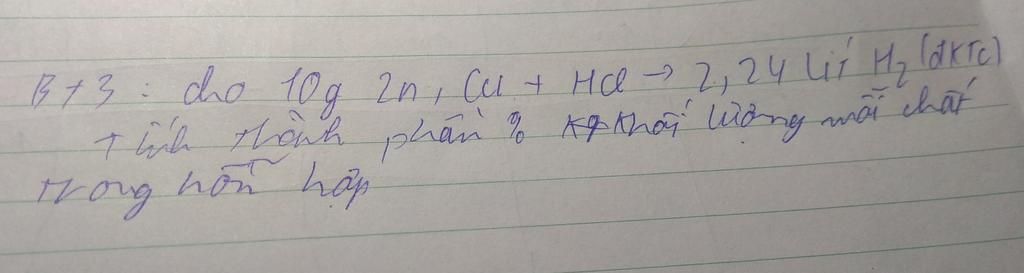 BT3: cho 10g Zn, Cu + HCl → 2,24 lít H₂ (đktc)
Tính thành phần % khối lượng mỗi chất
trong hỗn hợp